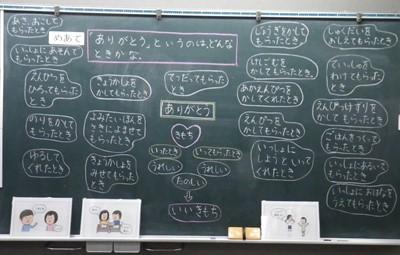 あさ、おこして
もらったとき
めあて
「ありがとう」というのは、どんな
ときかな。
いっしょにあそんで
もらったとき
えんぴつを
ひろってもらった
とき
のりをかして
もらったとき
ゆるして
くれたとき
きょうかしょを
かしてもらった
とき
よみたいほんを
さきによませて
もらったとき
きょうかしょを
みせてもらった
とき
てつだってもらった
とき
ありがとう
きもち
いったとき
いってもらったとき
うれしい
うれしい
たのしい
いいきもち
じょうぎをかして
もらったとき
けしごむを
かしてもらったとき
あかえんぴつを
かしてくれたとき
えんぴつを
かしてもらったとき
いっしょに
しようといって
くれたとき
しゅくだいを
おしえてもらったとき
ティッシュを
わけてもらった
とき
えんぴつけずりを
かしてもらったとき
ごはんをつくって
もらったとき
いっしょにあるいて
もらったとき
いっしょにおはなを
うえてもらったとき